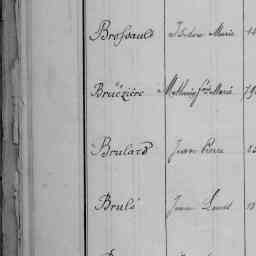 Brossauld Isidore Marie 14
Bruézière Mathurin Frs Marie 79
Brulard Jean Pierre
Brulé Jean Louis 18